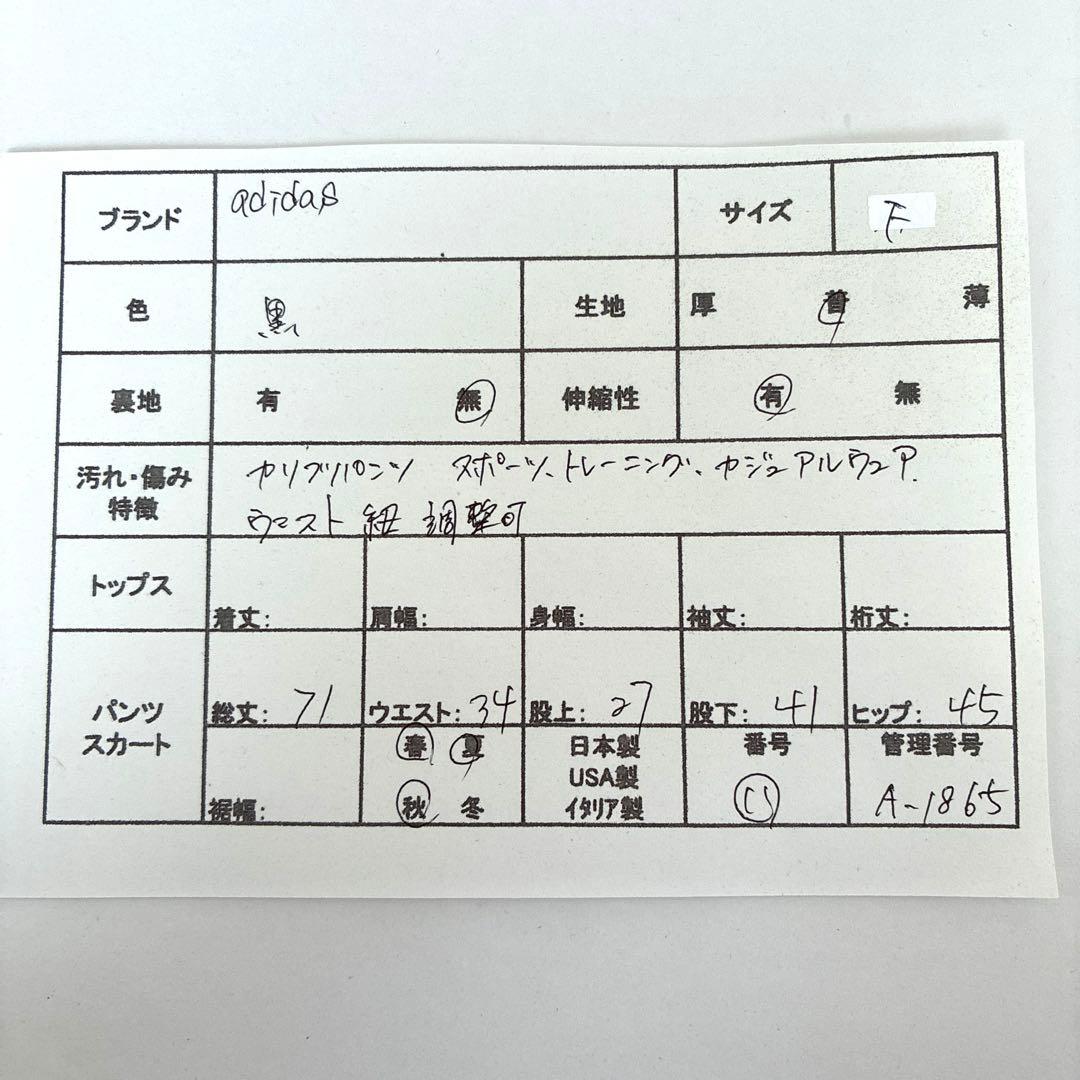 ブランド adidas サイズ F
色 黒 生地 厚 普 薄
裏地 有 無 伸縮性 有 無
汚れ・傷み 特徴 カリブリパンツ スポーツ、トレーニング、カジュアルウェア.
ウエスト 紐 調整可
トップス 着丈: 肩幅: 身幅: 袖丈: 裄丈:
パンツ スカート 総丈: 71 ウエスト: 34 股上: 27 股下: 41 ヒップ: 45
裾幅: 春 夏 秋 冬 日本製 USA製 イタリア製 番号 管理番号 A-1865